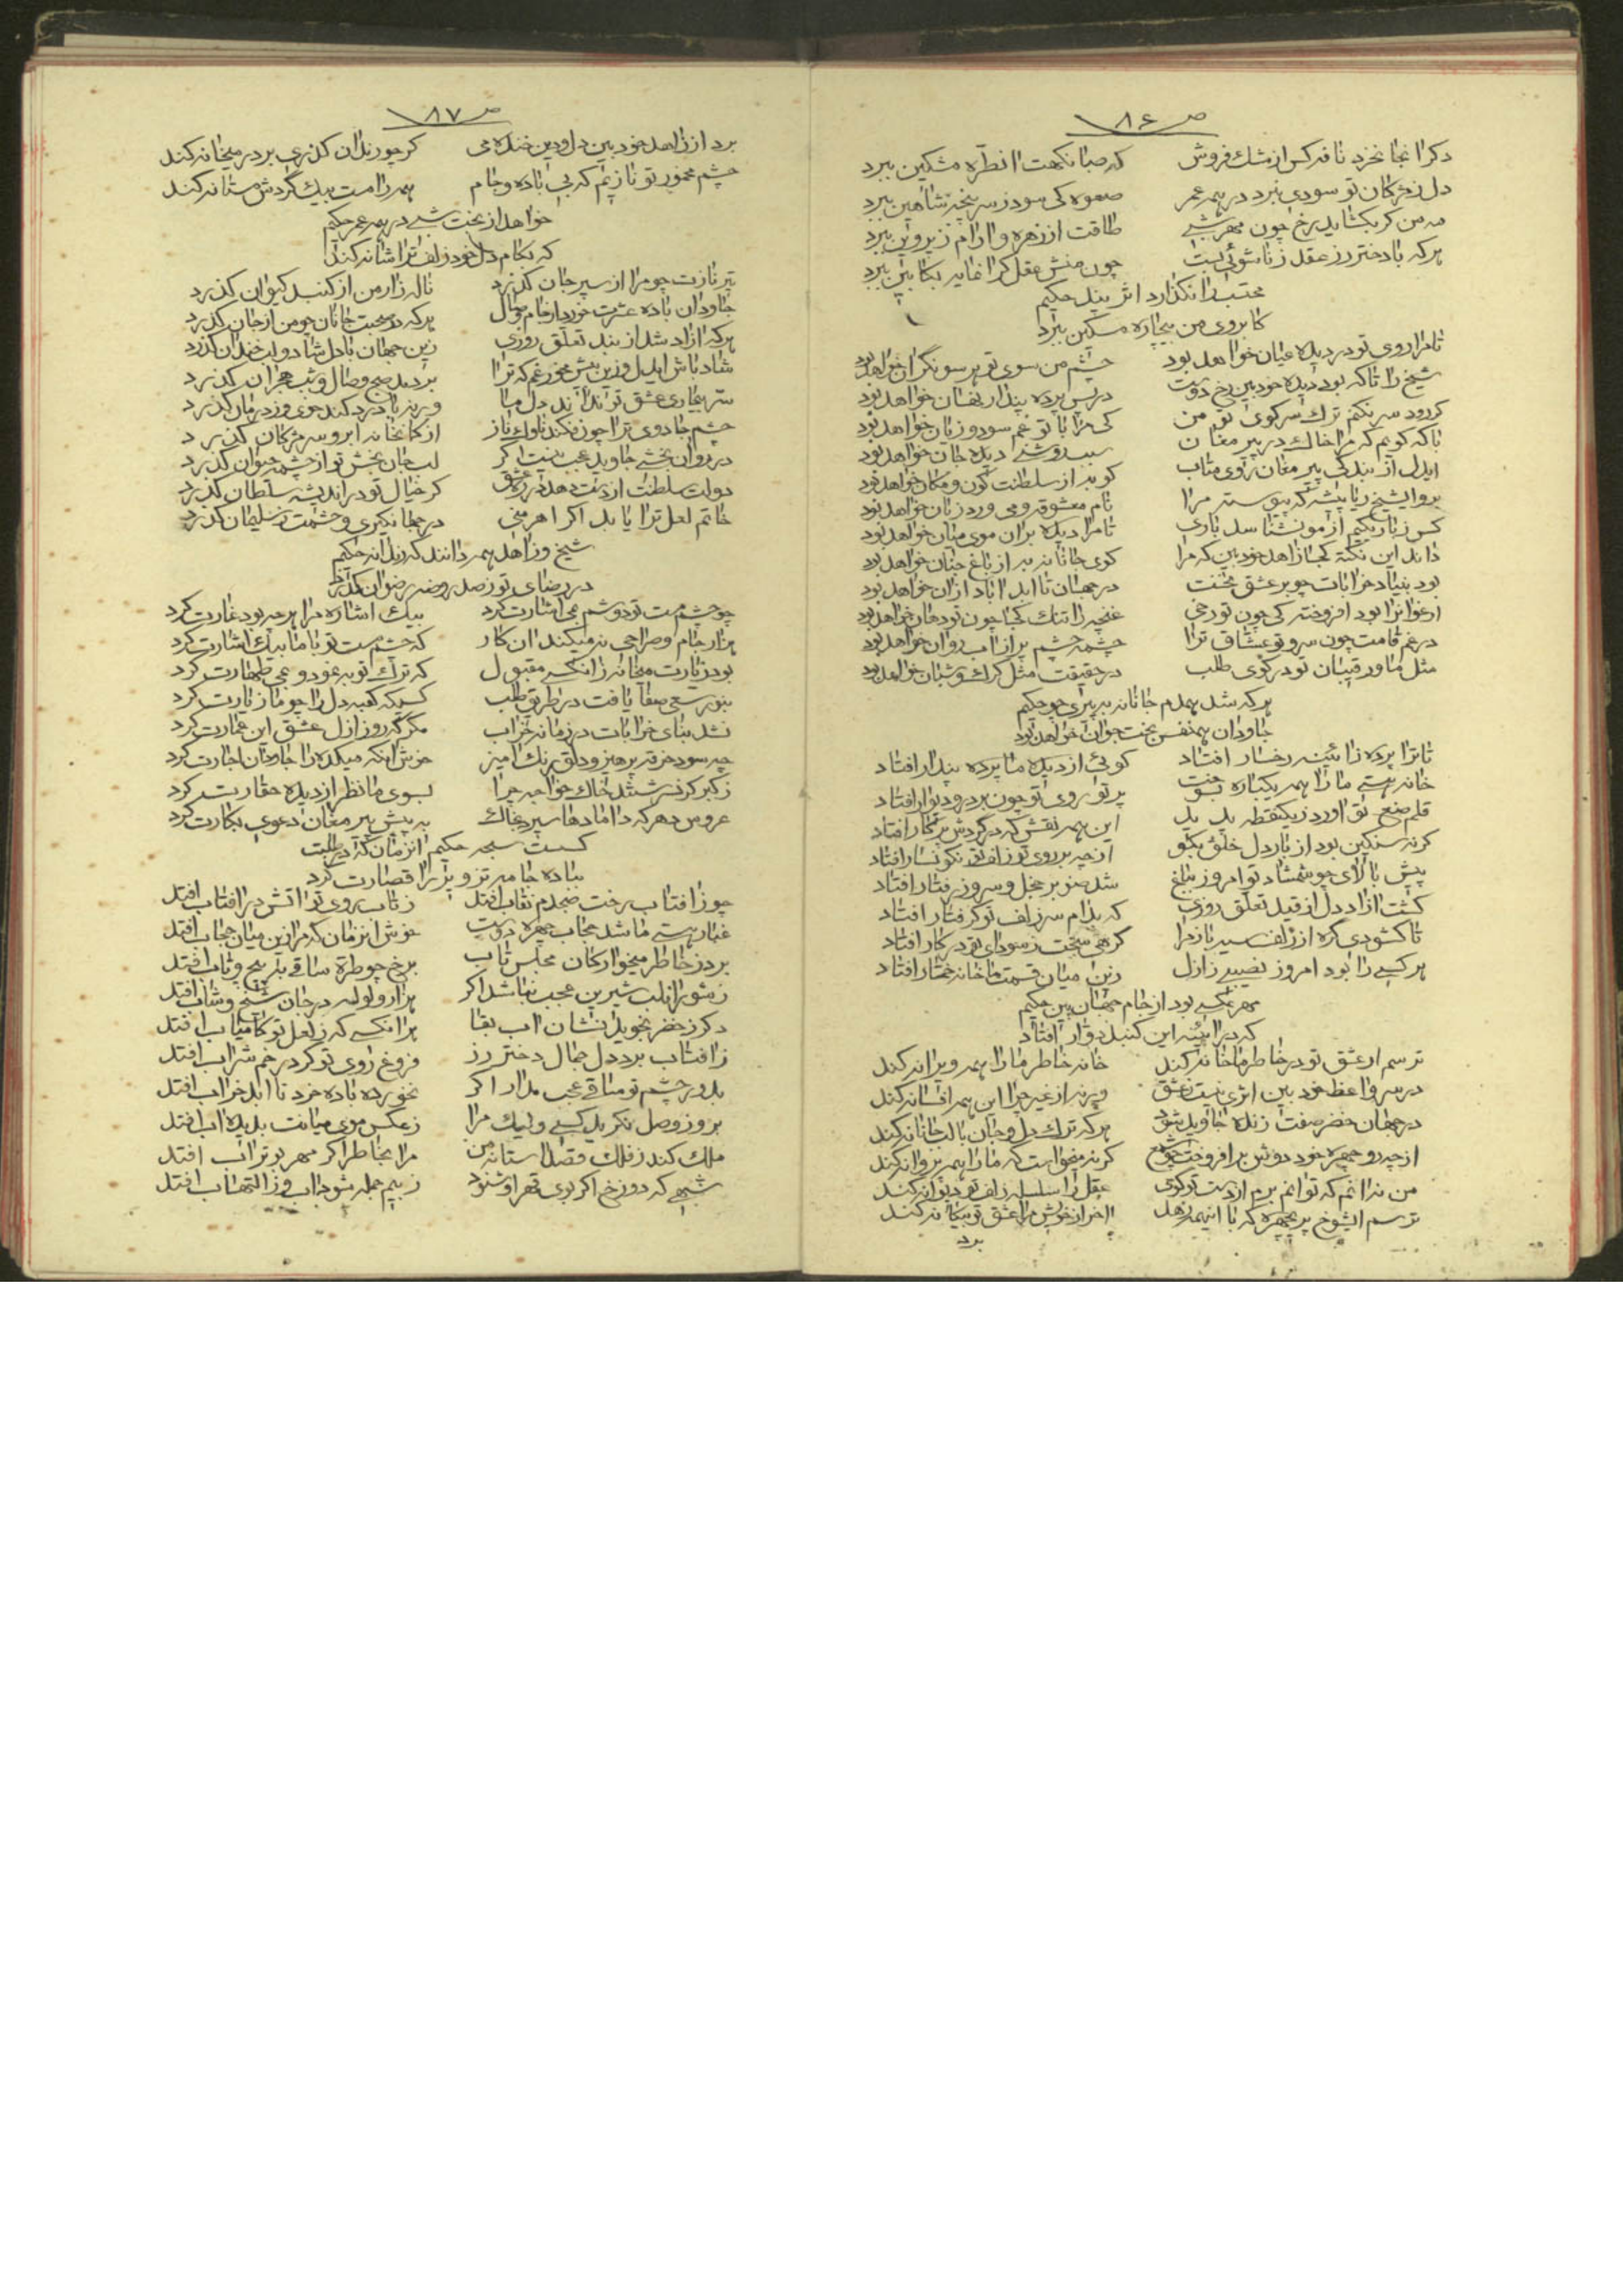 ص ٨۶
دکر انجا نخرد نافه کس از مشک فروش که صبا نکهت از طره مشکین ببرد
دل ز مژکان تو سودی نبرد در همه عمر صعوه کی سود ز سرپنجه شاهین ببرد
مه من کر بکشاید رخ چون مهر شبی طاقت از زهره و ارام ز پروین ببرد
هرکه با دختر رز عقد زناشوئی بست چون منش عقل کرانمایه بکابین ببرد
محتسب را نکذارد اثر پند حکیم
کابروی من بیچاره مسکین ببرد
تا مرا روی تو در دیده عیان خواهد بود چشم من سوی تو هر سو نکران خواهد بود
شیخ را تا که بود دیده خودبین رخ دوست در پس پرده پندار نهان خواهد بود
کر رود سر نکنم ترک سر کوی تو من کی مرا با تو غم سود و زیان خواهد بود
با که کویم که مرا خاک در پیر مغان سبب روشنی دیده جان خواهد بود
ایدل از بندکی پیر مغان روی متاب کو به از سلطنت کون و مکان خواهد بود
برو ایشیخ ریا پیشه که پیوسته مرا نام معشوقه و می ورد زبان خواهد بود
کس ز باریکیم از مو نشناسد باری تا مرا دیده بران موی میان خواهد بود
داند این نکته کجا زاهد خودبین که مرا کوی جانانه به از باغ جنان خواهد بود
بود بنیاد خرابات چو بر عشق نخست در جهان تا ابد اباد ازان خواهد بود
ارغوان را بود افروخته کی چون تو رخی غنچه را تنک کجا چون تو دهان خواهد بود
در غم قامت چون سرو تو عشاق ترا چشمه چشم پر از اب روان خواهد بود
مثل ما و رقیبان تو در کوی طلب در حقیقت مثل کرک و شبان خواهد بود
هر که شد همدم جانانه به پیری چو حکیم
جاودان همنفس بخت جوان خواهد بود
تا ترا پرده ز ائینه رخسار افتاد کوئی از دیده ما پرده پندار افتاد
خانه هستی ما را همه یکباره بسوخت پرتو روی تو چون بر در و دیوار افتاد
قلم صنع تو اورد ز یکنقطه پدید این همه نقش که در کردش پرکار افتاد
کر نه سنکین بود از بار دل خلق بکو از چه بر روی تو زلف تو نکونسار افتاد
پیش بالای چو شمشاد تو امروز بباغ شد صنوبر خجل و سرو ز رفتار افتاد
کشت ازاد دل از قید تعلق روزی که بدام سر زلف تو کرفتار افتاد
تا کشودی کره از زلف سیه باز مرا کرهی سخت ز سودای تو در کار افتاد
هر کسی را بود امروز نصیبی ز ازل زین میان قسمت ما خانه خمار افتاد
مهر عکسی بود از جام جهان بین حکیم
که در ائینه این کنبد دوار افتاد
ترسم ار عشق تو در خاطر ما خانه کند خانه خاطر ما را همه ویرانه کند
در سر واعظ خود بین اثری نیست ز عشق ورنه از غیر چرا این همه افسانه کند
در جهان خضر صفت زنده جاوید شود هر که ترک دل و جان با لب جانانه کند
از چه رو چهره خود دوش بر افروخت چو شمع کر نه میخواست که ما را همه پروانه کند
من نه انم که توانم برم از دست تو کوی عقل را سلسله زلف تو دیوانه کند
ترسم ایشوخ پریچهره که با اینهمه زهد اخر از خویش مرا عشق تو بیکانه کند
برد
ص ٨٧
برد از زاهد خود بین دل و دین خنده می کر چو رندان کذری بر در میخانه کند
چشم مخمور تو نازم که بی باده و جام همه را مست بیک کردش مستانه کند
خواهد از بخت شبی در همه عمر حکیم
که بکام دل خود زلف ترا شانه کند
تیر نازت چو مرا از سپر جان کذرد ناله زار من از کنبد کیوان کذرد
جاودان باده عشرت خورد از جام وصال هر که در صحبت جانان چو من از جان کذرد
هر که ازاد شد از بند تعلق روزی زین جهان با دل شاد و لب خندان کذرد
شاد باش ایدل و زین بیش مخور غم که ترا بر دمد صبح وصال و شب هجران کذرد
سر بیماری عشق تو نداند دل ما ورنه با درد کند خوی و ز درمان کذرد
چشم جادوی ترا چون فکند ناوک ناز از کمانخانه ابرو سر مژکان کذرد
در روان بخشی جاوید عجب نیست اکر لب جان بخش تو از چشمه حیوان کذرد
دولت سلطنت از دست دهد در ره عشق کر خیال تو در اندیشه سلطان کذرد
خاتم لعل ترا یابد اکر اهرمنی در جهانکیری و حشمت ز سلیمان کذرد
شیخ و زاهد همه دانند که رندانه حکیم
در رضای تو ز صد روضه رضوان کذرد
چو چشم مست تو دوشم بمی اشارت کرد بیک اشاره مرا هر چه بود غارت کرد
هزار جام و صراحی نه میکند ان کار که چشم مست تو با ما بیک اشارت کرد
بود زیارت میخانه زانکسی مقبول که ترک توبه نمود و بمی طهارت کرد
بنور سعی صفا یافت در طریق طلب کسیکه کعبه دل را چو ما زیارت کرد
نشد بنای خرابات در زمانه خراب مکر که روز ازل عشق این عمارت کرد
چه سود خرقه پرهیز و دلق رنک امیز خوش انکه میکده را جاودان اجارت کرد
ز کبر کر نسرشتند خاک خواجه چرا بسوی ما نظر از دیده حقارت کرد
عروس دهر که دامادها سپرد بخاک به پیش پیر مغان دعوی بکارت کرد
کسست سبحه حکیم انزمان که در طلبت
بباده جامه تزویر را قصارت کرد
چو ز افتاب رخت صبحدم نقاب افتد ز تاب روی تو اتش در افتاب افتد
غبار هستی ما شد حجاب چهره دوست خوش انزمان که مرا زین میان حجاب افتد
برد ز خاطر میخوارکان مجلس تاب برخ چو طره ساقی به پیچ و تاب افتد
ز شور انلب شیرین عجب نباشد اکر هزار ولوله در جان شیخ و شاب افتد
دکر ز خضر نجوید نشان اب بقا هر انکسی که ز لعل تو کامیاب افتد
ز افتاب برد دل جمال دختر رز فروغ روی تو کر در خم شراب افتد
بدور چشم تو ساقی عجب مدار اکر نخورده باده خرد تا ابد خراب افتد
بروز وصل نکرید کسی ولیک مرا ز عکس موی میانت بدیده اب افتد
ملک کند ز فلک قصد استانه من مرا بخاطر اکر مهر بوتراب افتد
شهی که دوزخ اکر بوی قهر او شنود ز بیم جمله شود اب وز التهاب افتد